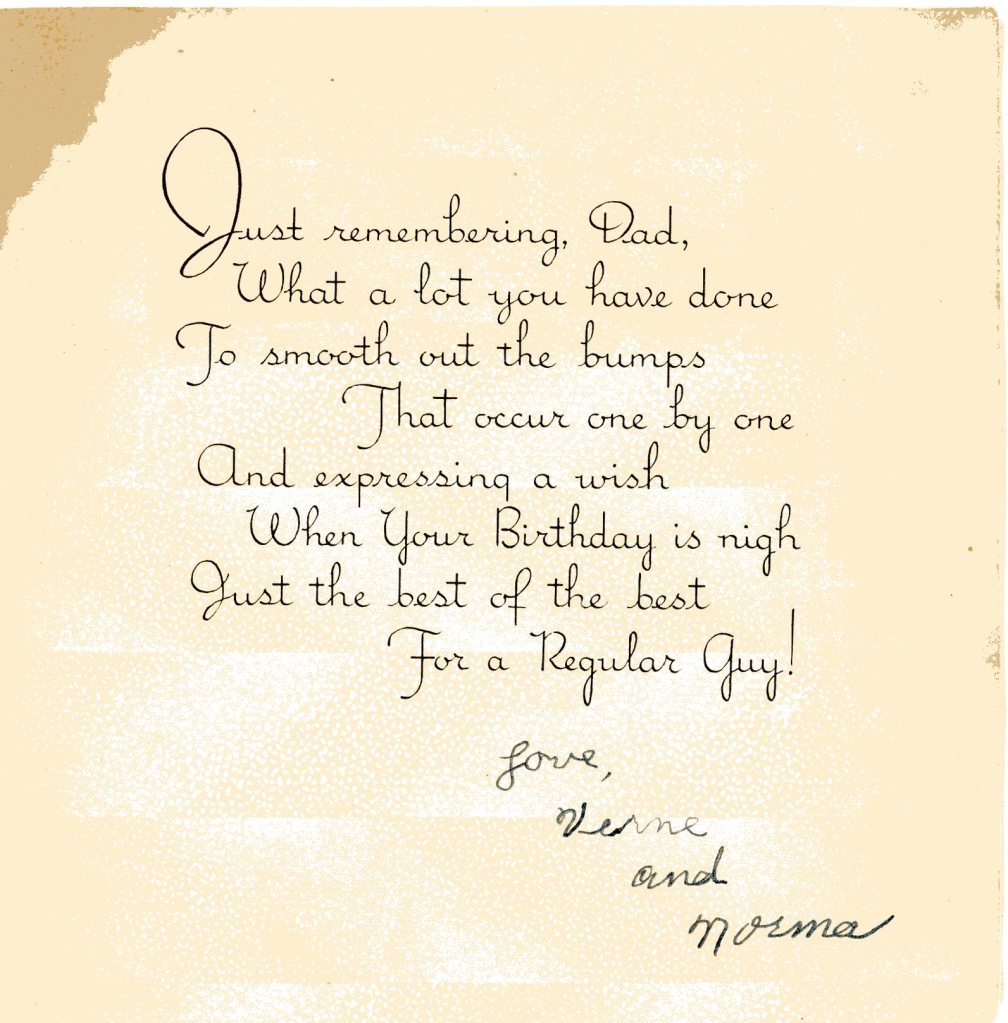 Just remembering, Dad,
What a lot you have done
To smooth out the bumps
That occur one by one
And expressing a wish
When Your Birthday is nigh
Just the best of the best
For a Regular Guy!
Love,
Verne
and
Norma